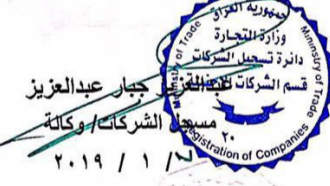 جمهورية العراق
وزارة التجارة
دائرة تسجيل الشركات
قسم الشركات
Ministry of Trade
Registration of Companies
٢٠
عبدالعزيز جبار عبدالعزيز
مسجل الشركات/ وكالة
/ ١ / ٢٠١٩